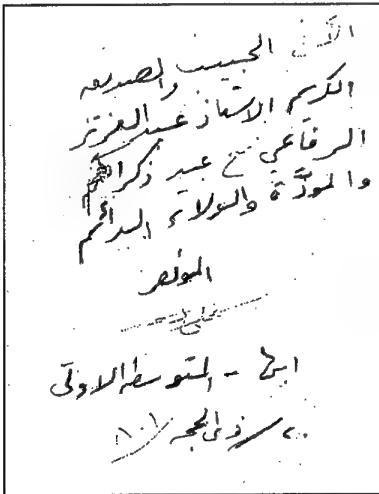 الأخ الحبيب والصديق
الكريم الاستاذ عبد العزيز
الرفاعي مع عبير ذكراكم
والمودَّة والولاء الدائم
المؤلف
ابها - المتوسطة الاولى
٢٠/ذى الحجه/